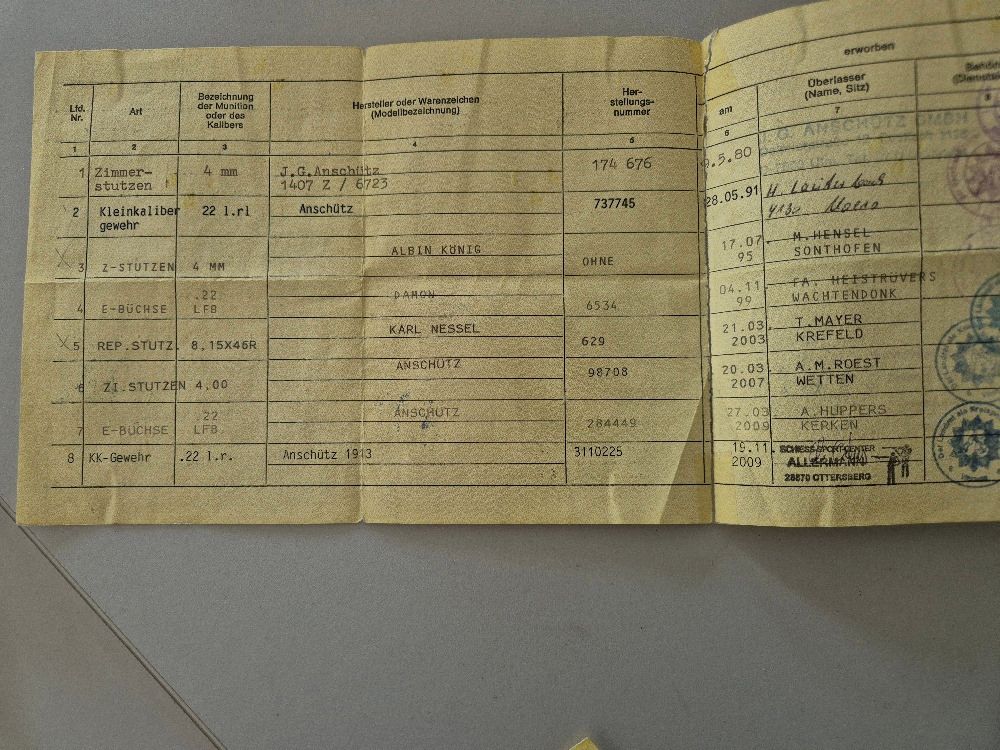 erworben
Lfd. Nr.
Art
Bezeichnung der Munition oder des Kalibers
Hersteller oder Warenzeichen (Modellbezeichnung)
Her-stellungs-nummer
am
Überlasser (Name, Sitz)
1 2 3 4 5 6 7 8
1 Zimmer- 4 mm J.G.Anschütz 174 676 9.5.80 J.G. ANSCHÜTZ GMBH
stutzen 1407 Z / 6723
2 Kleinkaliber 22 l.rl Anschütz 737745 28.05.91
gewehr
3 Z-STUTZEN 4 MM ALBIN KÖNIG OHNE 17.07 M.HENSEL
95 SONTHOFEN
4 E-BÜCHSE .22 DAMON 6534 04.11 FA. HEISTRÜVERS
LFB 99 WACHTENDONK
5 REP.STUTZ. 8,15X46R KARL NESSEL 629 21.03. T.MAYER
2003 KREFELD
6 ZI.STUTZEN 4,00 ANSCHÜTZ 98708 20.03 A.M.ROEST
2007 WETTEN
7 E-BÜCHSE .22 ANSCHÜTZ 284449 27.03 A.HÜPPERS
LFB. 2009 KERKEN
8 KK-Gewehr .22 l.r. Anschütz 1913 3110225 19.11. SCHIESS-SPORT-CENTER
2009 ALLERMANN
28870 OTTERSBERG